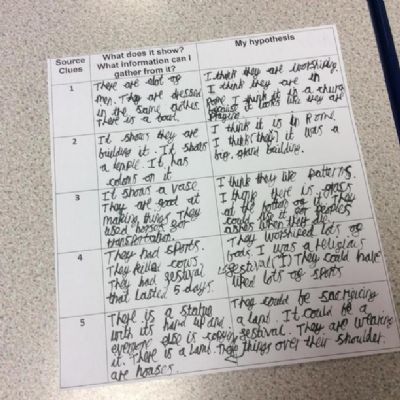 Source Clues
What does it show? What information can I gather from it?
My hypothesis
1
There are alot of
men. They are dressed
in the same clothes.
There is a bowl.
I think they are worshiping.
I think they are in
Rome. I think it is a
because it looks like they are
2
It shows they are
building it. It shows
a temple. It has
colors on it
I think it is in Rome.
I think it was a
big, building.
3
It shows a vase.
They are good at
making things. They
used horses for
transportation.
I think they like patterns.
I think there is
at the bottom of it. They
could use it for peoples
ashes when they die.
4
They had sports.
They killed cows.
They had festival
that lasted 5 days.
They worshiped lots of
Gods. I was a religious
festival. They could have
liked lots of sports
5
There is a statue
with its hand up and
everyone else is copying
it. There is a lamb. They
are houses.
They could be sacrificing
a lamb. It could be a
festival. They are wearing
things over their shoulder.